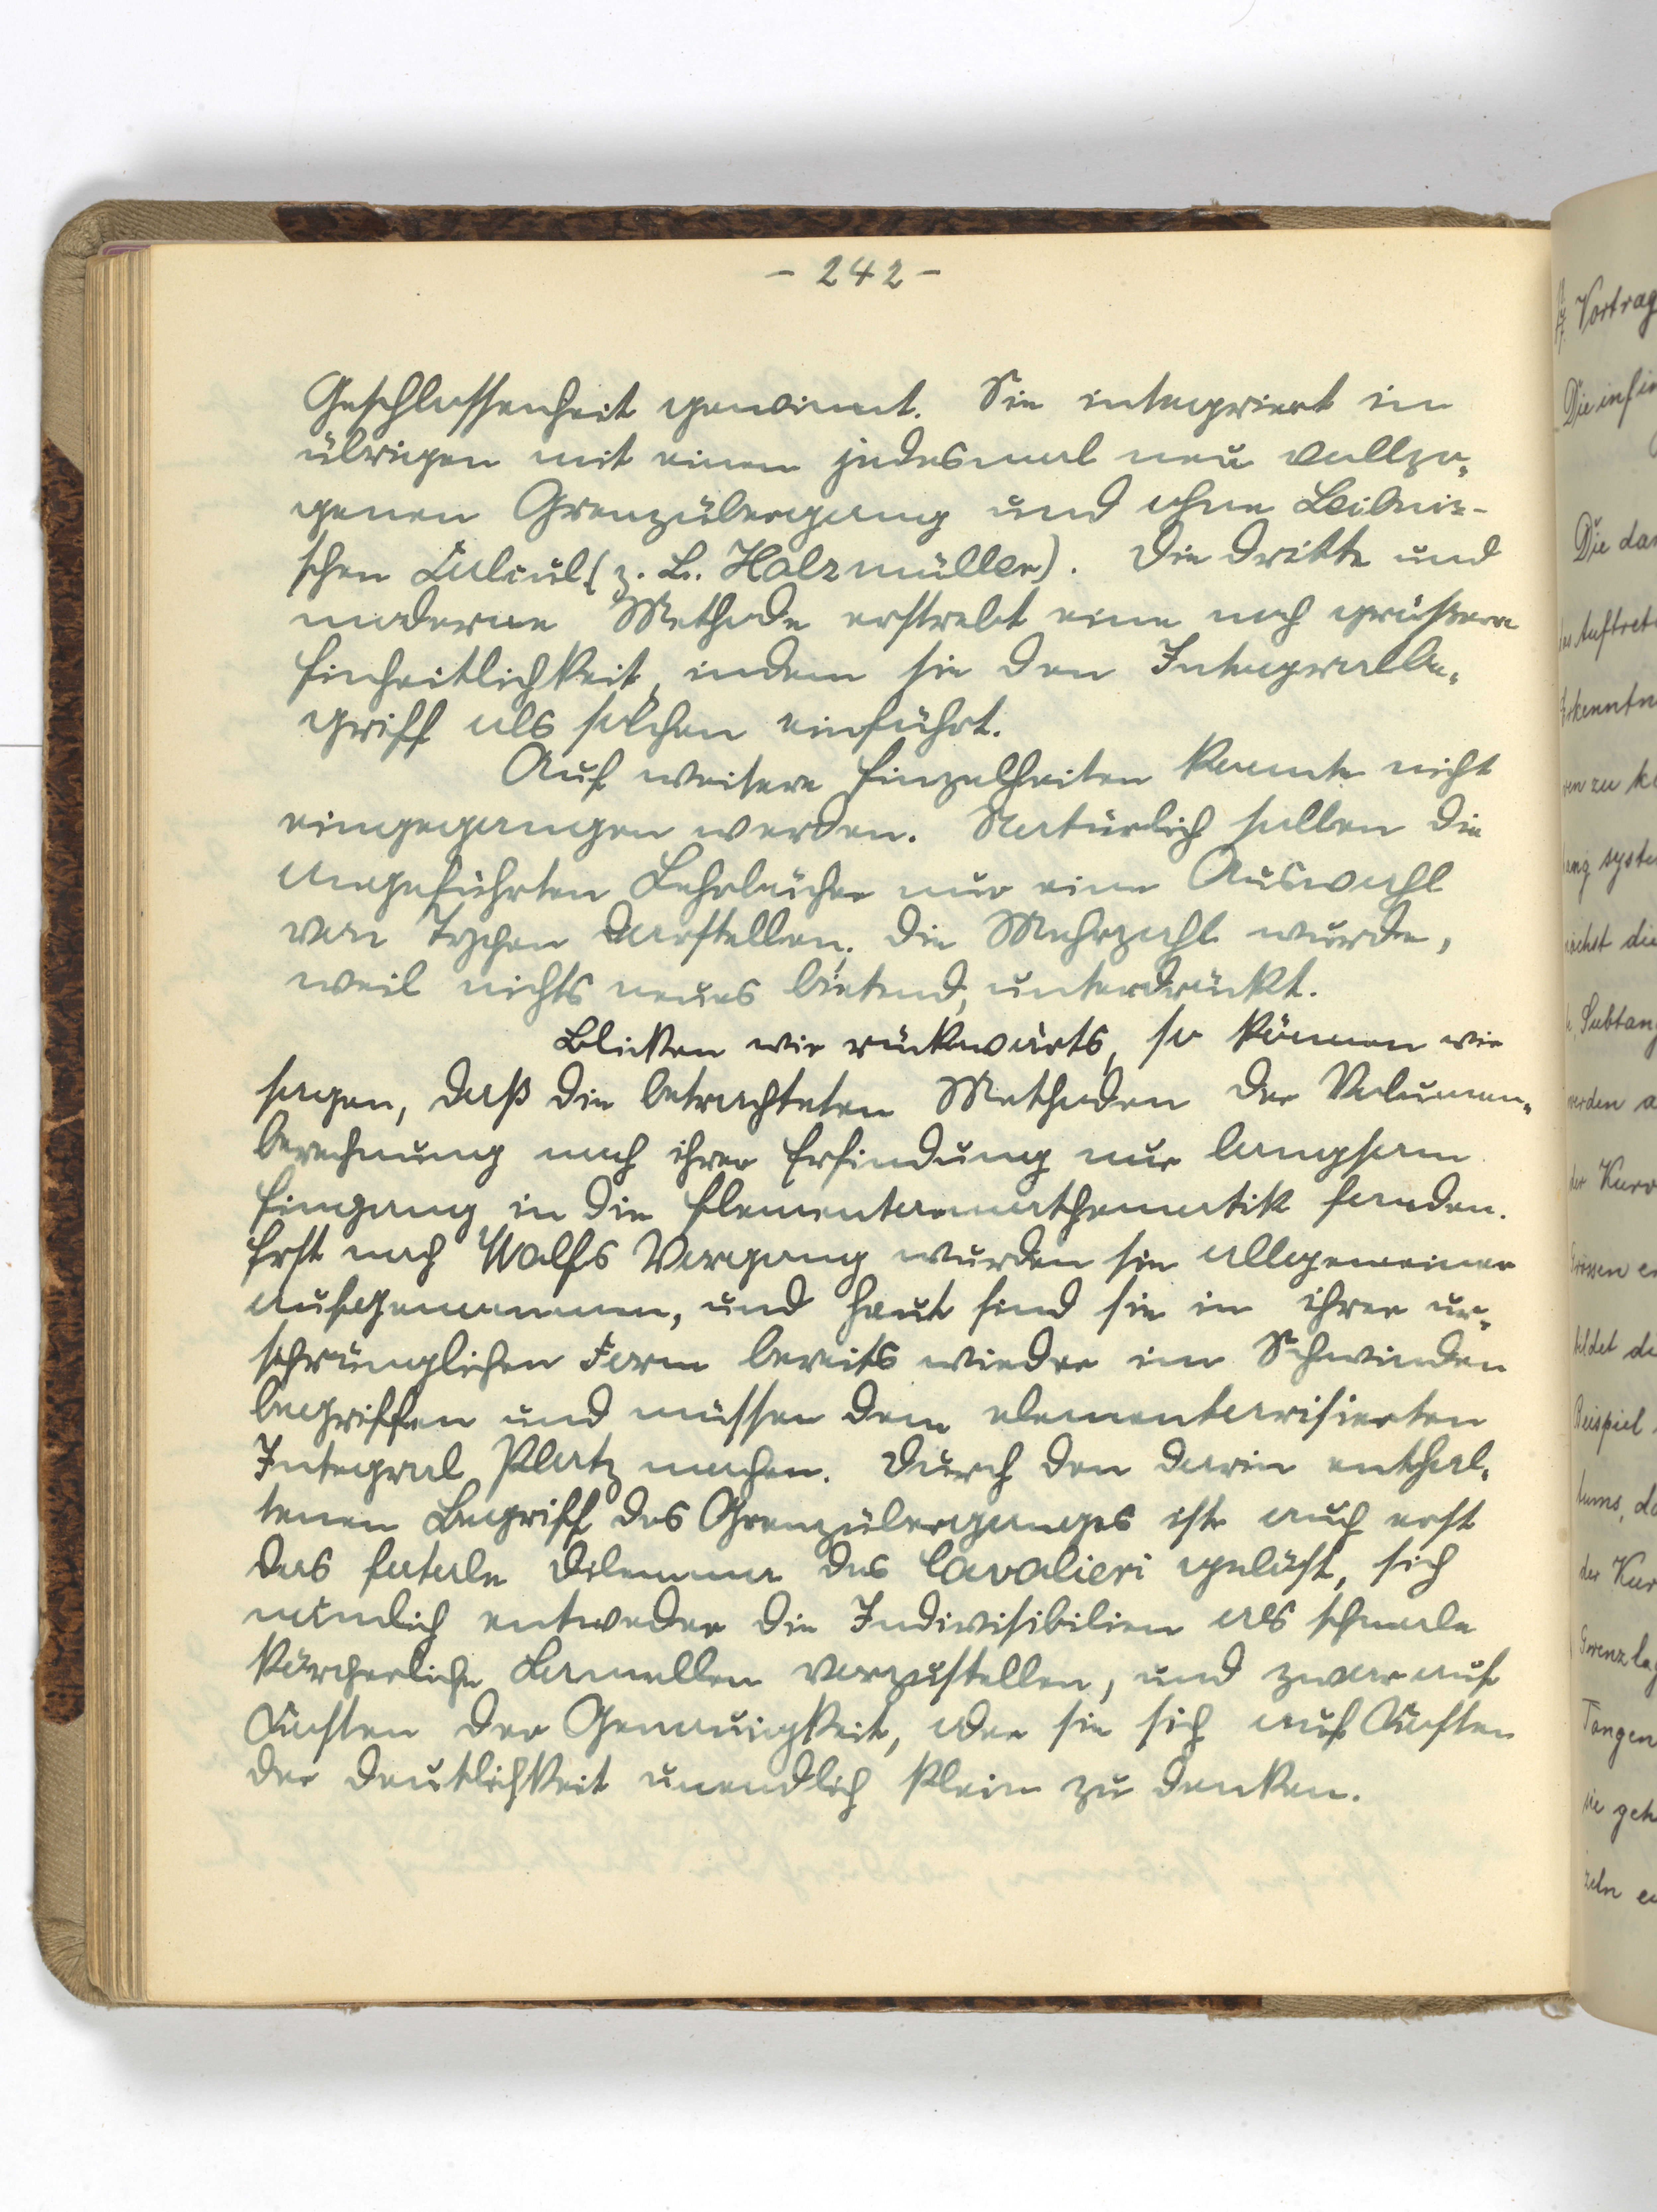 - 242 -
Geschlossenheit gewinnt. Sie integriert im
übrigen mit einem jedesmal neu vollzo-
genen Grenzübergang und ohne Leibniz-
schen Calcul (z. B. Holzmüller). Die dritte und
moderne Methode erstrebt eine noch grössere
Einheitlichkeit, indem sie den Integralbe-
griff als solchen einführt.
Auf weitere Einzelheiten konnte nicht
eingegangen werden. Natürlich sollen die
angeführten Lehrbücher nur eine Auswahl
von Typen darstellen; die Mehrzahl wurde,
weil nichts neues bietend, unterdrückt.
Blicken wir rückwärts, so können wir
sagen, daß die betrachteten Methoden der Volumen-
berechnung nach ihrer Erfindung nur langsam
Eingang in die Elementarmathematik fanden.
Erst nach Wolfs Vorgang wurden sie allgemeiner
aufgenommen, und heut sind sie in ihrer ur-
sprünglichen Form bereits wieder im Schwinden
begriffen und müssen dem elementarisierten
Integral Platz machen. Durch den darin enthal-
tenen Begriff des Grenzüberganges ist auch erst
das fatale Dilemma des Cavalieri gelöst, sich
nämlich entweder die Indivisibilien als schmale
körperliche Lamellen vorzustellen, und zwar auf
Kosten der Genauigkeit, oder sie sich auf Kosten
der Deutlichkeit unendlich klein zu denken.
Vortrag
Die infin
Die dar
Auftret
Erkenntn
zu k
syst
die
Subtang
werden a
der Kurv
Grössen e
bildet d
Beispiel
der Kur
Grenzlag
Tangen
sie geh